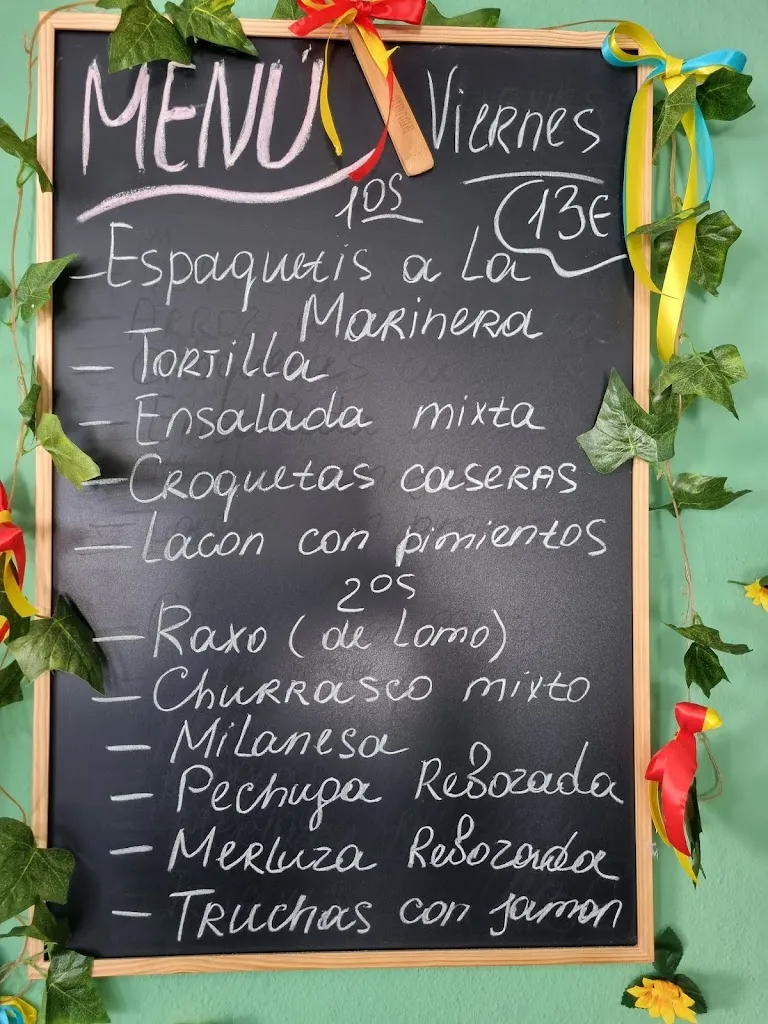 MENÚ Viernes
1os
13€
- Espaquetis a la
Marinera
- Tortilla
- Ensalada mixta
- Croquetas caseras
- Lacon con pimientos
2os
- Raxo (de lomo)
- Churrasco mixto
- Milanesa
- Pechuga Rebozada
- Merluza Rebozada
- Truchas con jamon